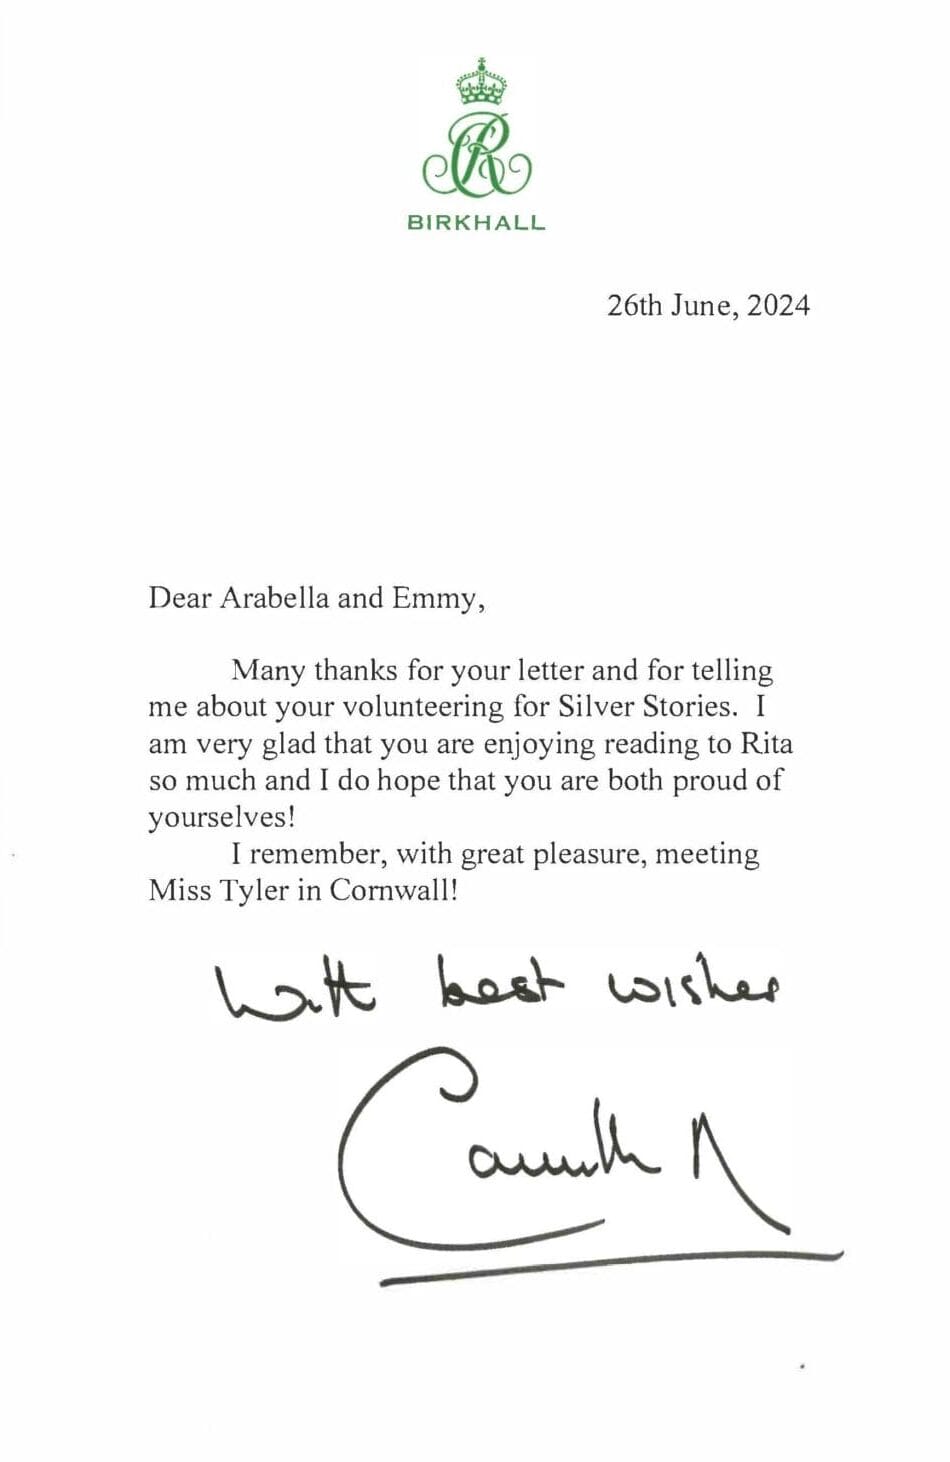 BIRKHALL
26th June, 2024
Dear Arabella and Emmy,
Many thanks for your letter and for telling
me about your volunteering for Silver Stories.  I
am very glad that you are enjoying reading to Rita
so much and I do hope that you are both proud of
yourselves!
I remember, with great pleasure, meeting
Miss Tyler in Cornwall!
With best wishes
Camilla R